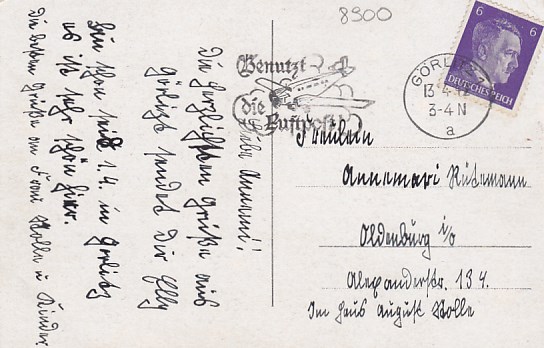 8900
Benutzt
die
Luftpost
6 6
DEUTSCHES REICH
GÖRLITZ
13.4.42
3-4 N
a
Liebe Annemi!
Die herzlichsten Grüße aus
Görlitz sendet Dir Elly
Bin schon seit 1.4. in Görlitz
es ist sehr schön hier.
Die besten Grüße an Frau Bolle u Kinder
Fräulein
Annemari Rütemann
Oldenburg i/o
Alexanderstr. 134.
Im Haus August Bolle